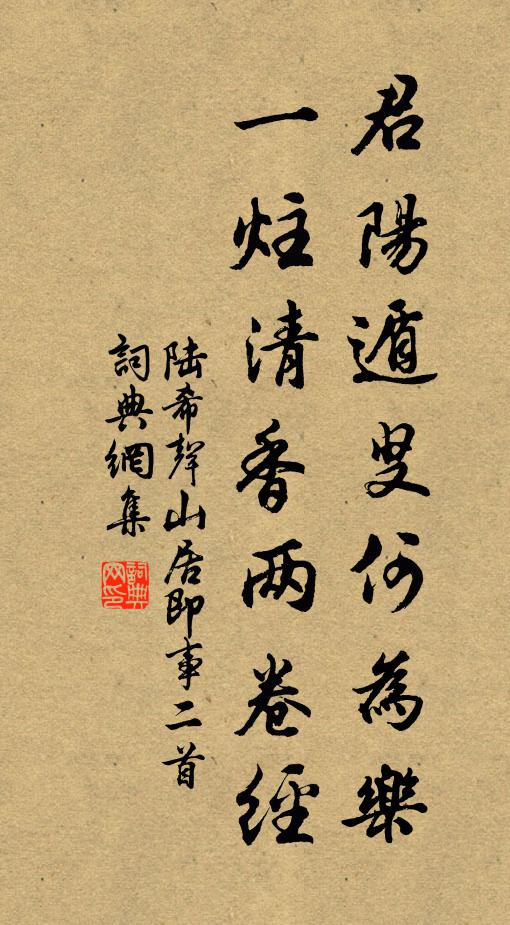 君陽遁叟何為樂
一炷清香两卷經
陸希聲山居即事二首
詞典網集
詞典网印